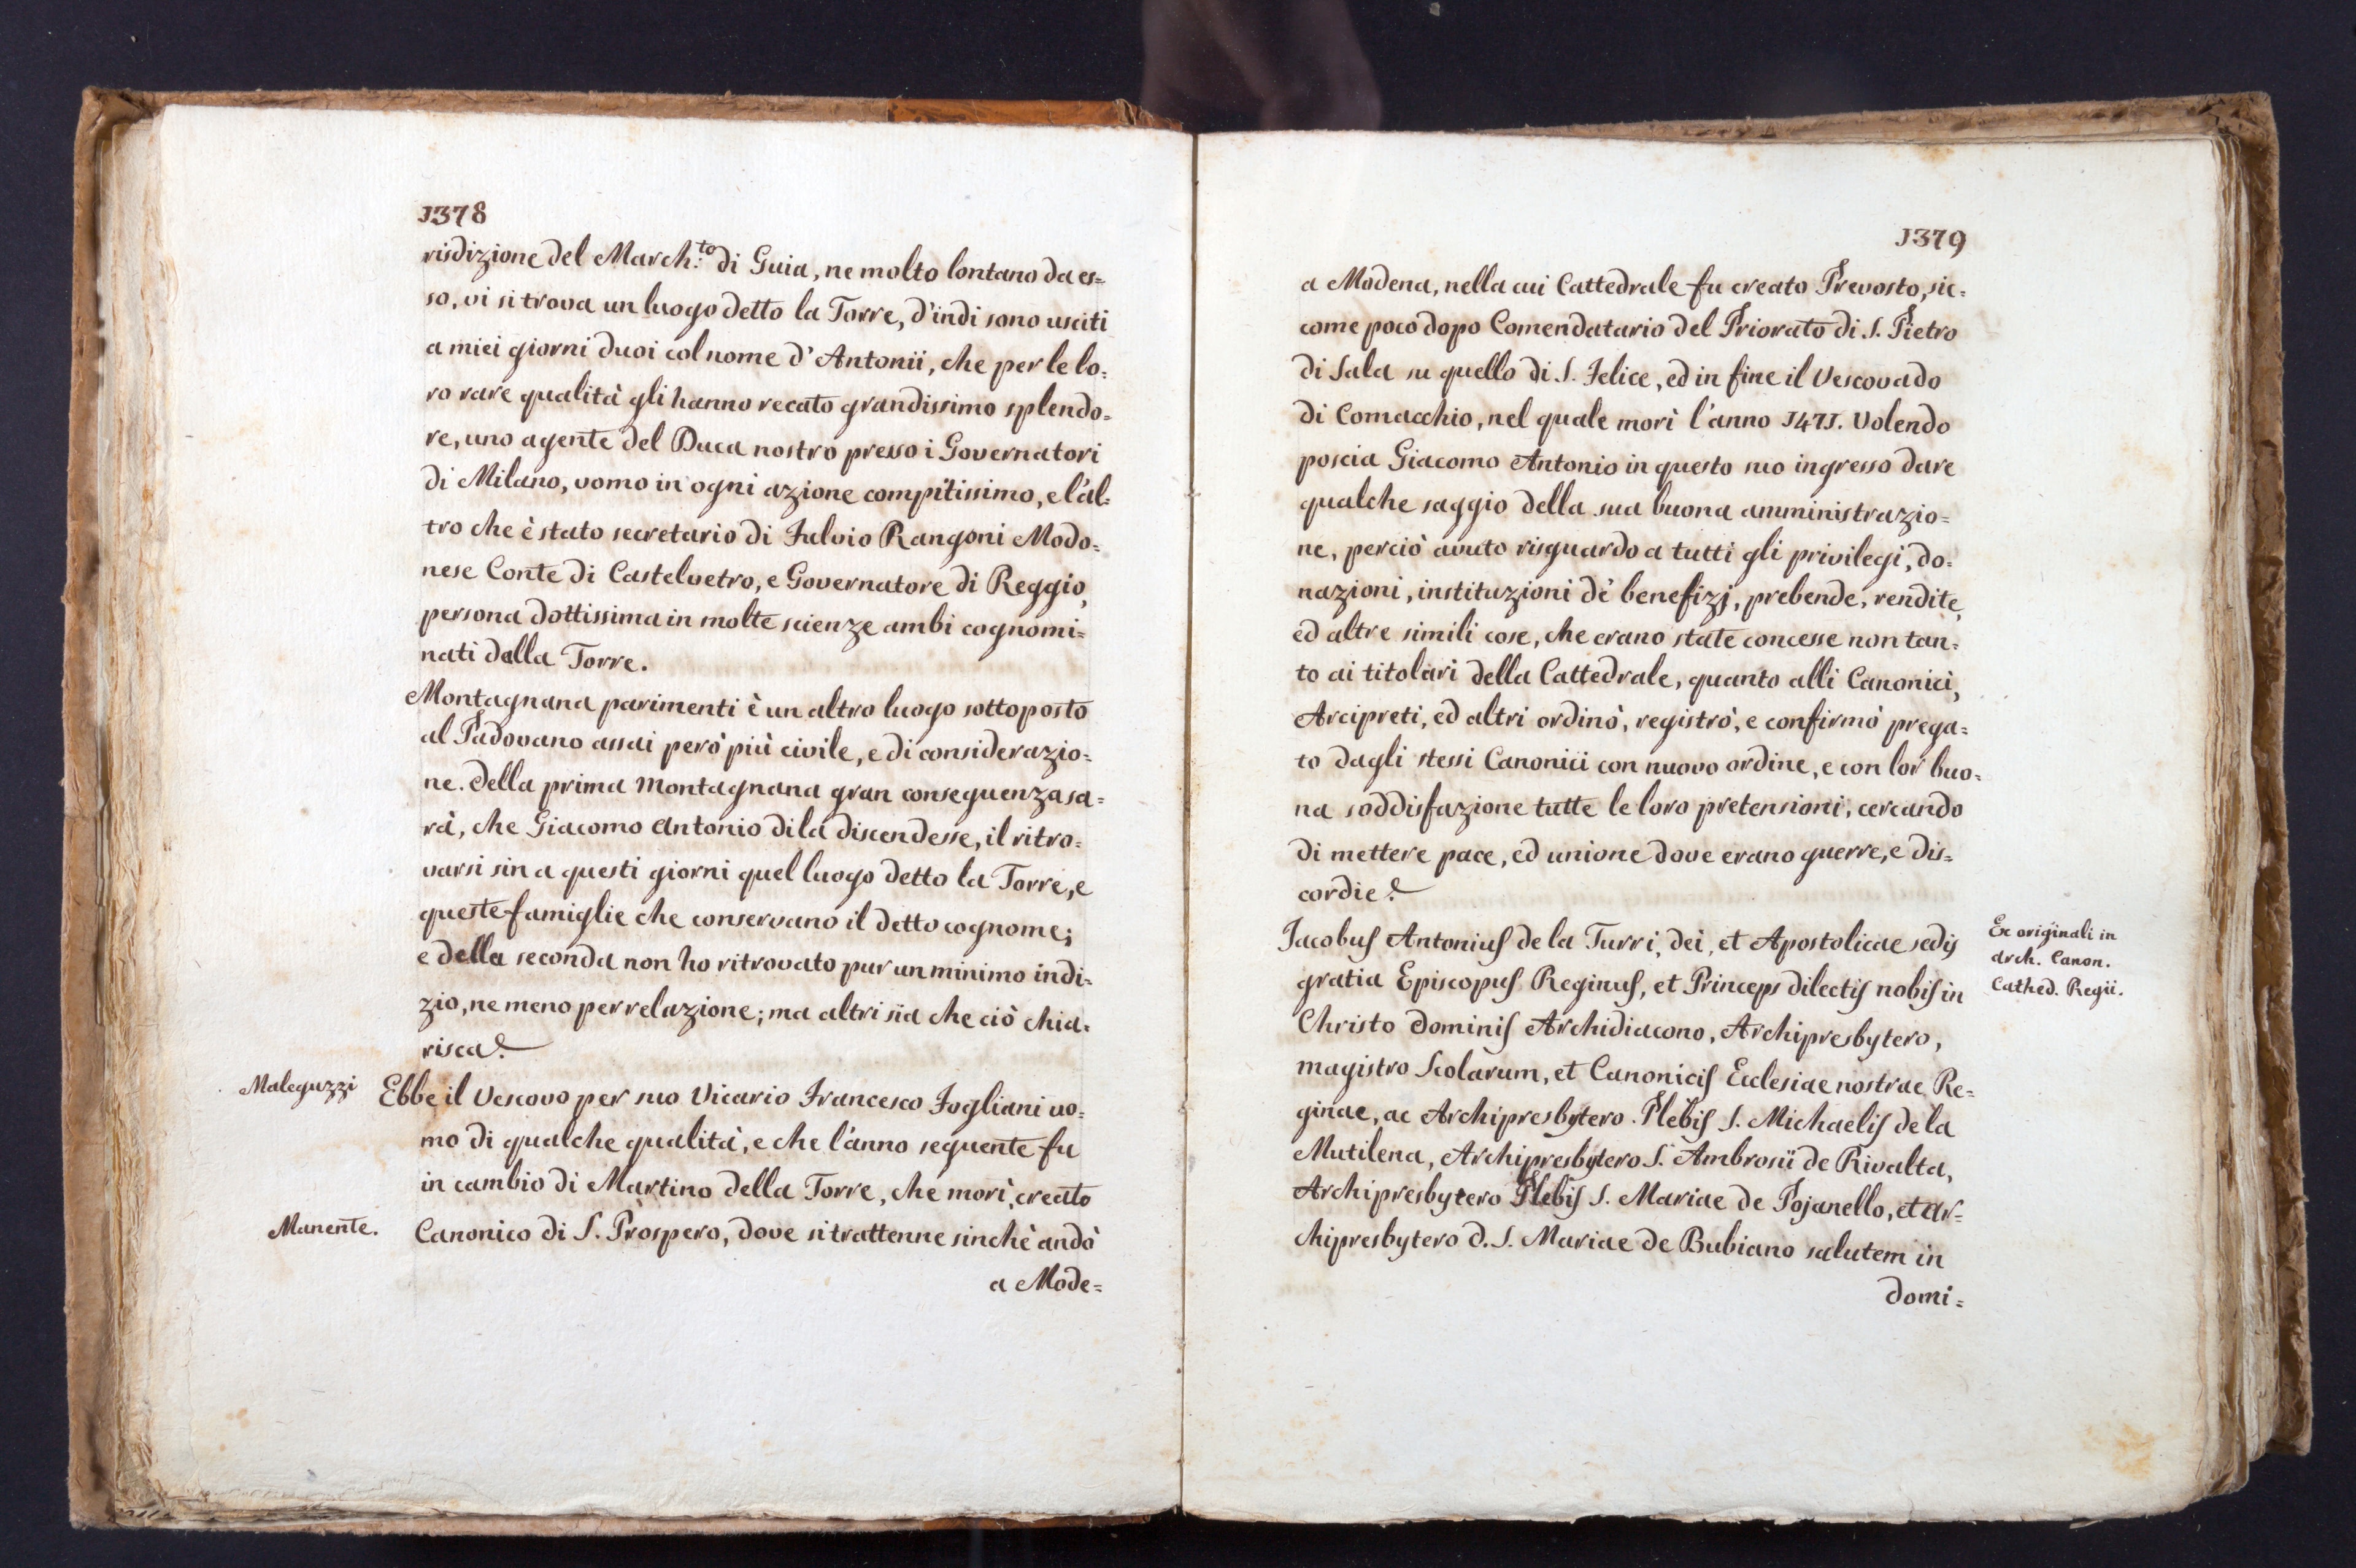 1378
risdizione del March.to di Guia, ne molto lontano da es=
so, vi si trova un luogo detto la Torre, d'indi sono usciti
a miei giorni duoi col nome d'Antonii, che per le lo=
ro rare qualità gli hanno recato grandissimo splendo=
re, uno agente del Duca nostro presso i Governatori
di Milano, uomo in ogni azione compitissimo, e l'al=
tro che è stato secretario di Fulvio Rangoni Modo=
nese Conte di Castelvetro, e Governatore di Reggio,
persona dottissima in molte scienze ambi cognomi=
nati dalla Torre.
Montagnana parimenti è un altro luogo sottoposto
al Padovano assai però più civile, e di considerazio=
ne. Della prima Montagnana gran conseguenza sa=
rà, che Giacomo Antonio di là discendesse, il ritro=
varsi sin a questi giorni quel luogo detto la Torre, e
queste famiglie che conservano il detto cognome;
e della seconda non ho ritrovato pur un minimo indi=
zio, ne meno per relazione; ma altri sia che ciò chia=
risca.
Maleguzzi
Ebbe il Vescovo per suo Vicario Francesco Fogliani uo=
mo di qualche qualità, e che l'anno seguente fu
in cambio di Martino della Torre, che morì, creato
Manente.
Canonico di S. Prospero, dove si trattenne sinchè andò
a Mode=
1379
a Modena, nella cui Cattedrale fu creato Prevosto, sic=
come poco dopo Comendatario del Priorato di S. Pietro
di Sala su quello di S. Felice, ed in fine il Vescovado
di Comacchio, nel quale morì l'anno 1471. Volendo
poscia Giacomo Antonio in questo suo ingresso dare
qualche saggio della sua buona amministrazio=
ne, perciò avuto risguardo a tutti gli privilegi, do=
nazioni, instituzioni de' benefizj, prebende, rendite,
ed altre simili cose, che erano state concesse non tan=
to ai titolari della Cattedrale, quanto alli Canonici,
Arcipreti, ed altri ordinò, registrò, e confirmò prega=
to dagli stessi Canonici con nuovo ordine, e con lor buo=
na soddisfazione tutte le loro pretensioni, cercando
di mettere pace, ed unione dove erano guerre, e dis=
cordie.
Jacobus Antonius de la Turri, dei, et Apostolicae sedis
Ex originali in
arch. Canon.
Cathed. Regii.
gratia Episcopus Reginus, et Princeps dilectis nobis in
Christo Dominis Archidiacono, Archipresbytero,
magistro Scolarum, et Canonicis Ecclesiae nostrae Re=
ginae, ac Archipresbytero Plebis S. Michaelis de la
Mutilena, Archipresbytero S. Ambrosii de Rivalta,
Archipresbytero Plebis S. Mariae de Pojanello, et Ar=
chipresbytero d. S. Mariae de Bubiano salutem in
domi=